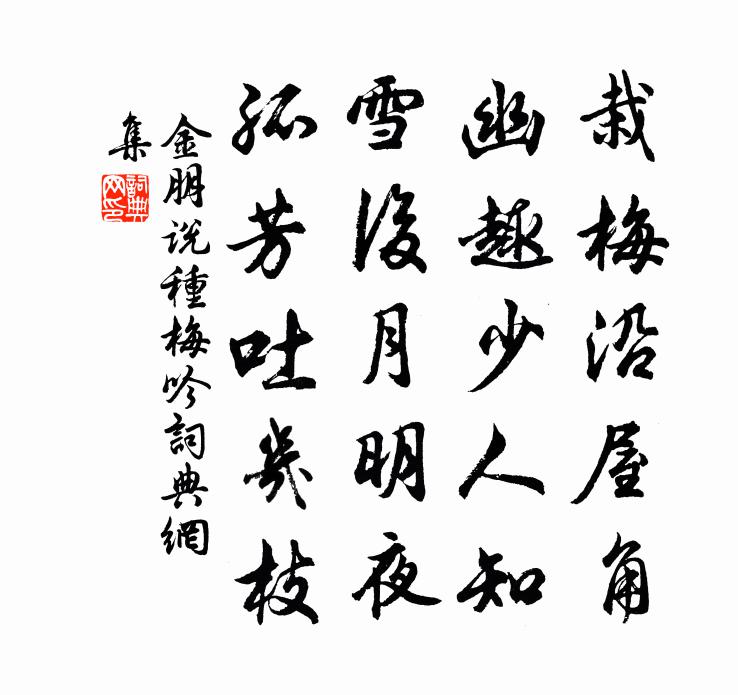 栽梅沿屋角
幽趣少人知
雪後月明夜
孤芳吐幾枝
金朋说種梅吟詞典網
集
詞典
网印